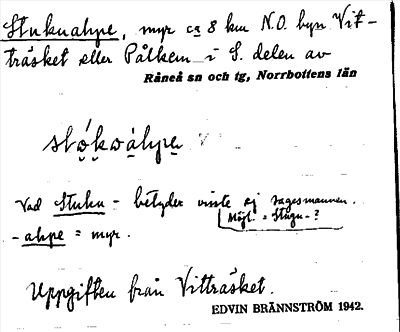 Stukuahpe, myr ca 8 km N.O. byn Vit-
träsket eller Pålkem i S. delen av
Råneå sn och tg, Norrbottens län
Vad Stuku- betyder visste ej sagesmannen.
Möjl. = Stugu-?
-ahpe = myr.
Uppgiften från Vitträsket.
EDVIN BRÄNNSTRÖM 1942.